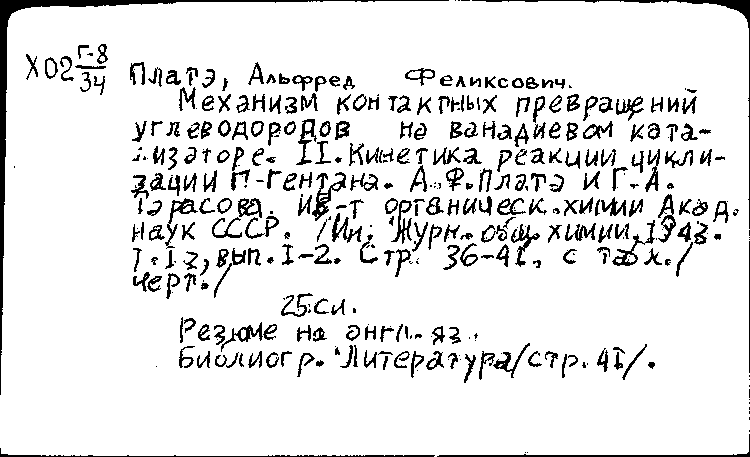 Х02 Г-8/34 Платэ, Альфред Феликсович.
Механизм контактных превращений
углеводородов на ванадиевом ката-
лизаторе. II. Кинетика реакции цикли-
зации П-Гептана. А.Ф.Платэ и Г.А.
Тарасова. Ин-т органическ. химии Акад.
наук СССР. /Ин: Журн. общ. химии, 1943.
Т.I3, вып. I-2. Стр. 36-4I, с табл./
черт./
25см.
Резюме на англ. яз.
Библиогр. "Литература/стр. 4I/.